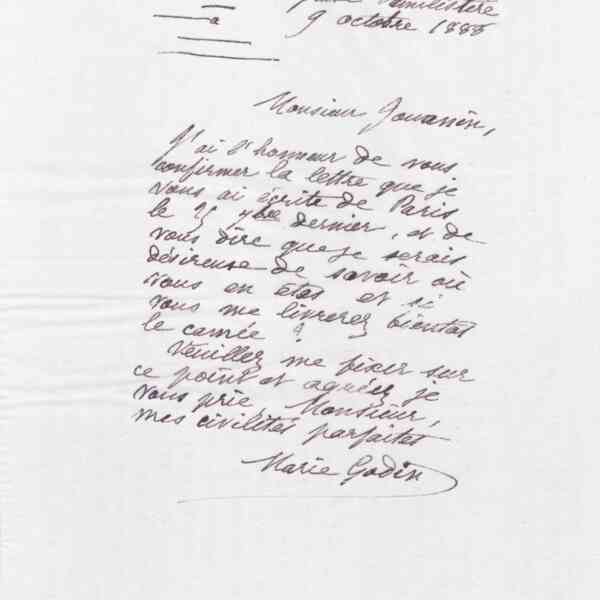 Familistère
a
9 octobre 1888
Monsieur Jouannin,
J'ai l'honneur de vous
confirmer la lettre que je
vous ai écrite de Paris
le 25 7bre dernier, et de
vous dire que je serais
désireuse de savoir où
vous en êtes et si
vous me livrerez bientot
le camée ?
Veuillez me fixer sur
ce point et agréez je
vous prie Monsieur,
mes civilités parfaites
Marie Godin